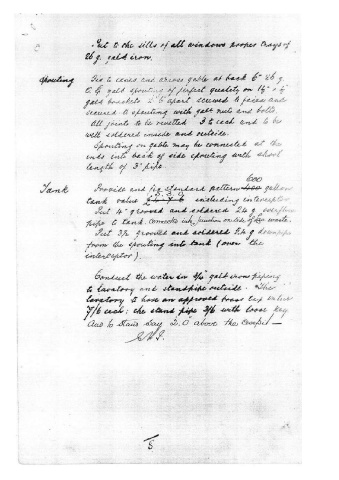 Put to the sills of all windows proper trays of
26 g. galvd iron.
Spouting Fix to eaves and across gable at back 6" 26 g
galvd spouting of perfect quality on 1½" x ⅛"
galvd brackets 2'6 apart screwed to fascia and
secured to spouting with galvd nuts and bolts.
All joints to be rivetted 3 to each and to be
well soldered inside and outside.
Spouting on gable may be connected at the
ends into back of side spouting with short
length of 3" pipe.
600
Tank Provide and fix standard pattern gallon
tank value including interceptor
Put 4" grooved and soldered 24 g overflow
pipe to tank
Put 3½ grooved and soldered 24 g downpipe
from the spouting into tank (over the
interceptor).
Conduct the water in galvd iron piping
to lavatory and standpipe outside. The
lavatory to have an approved brass tap value
7/6 each: the stand pipe 7/6 with loose key
and to stand say 2'.0" above the
5